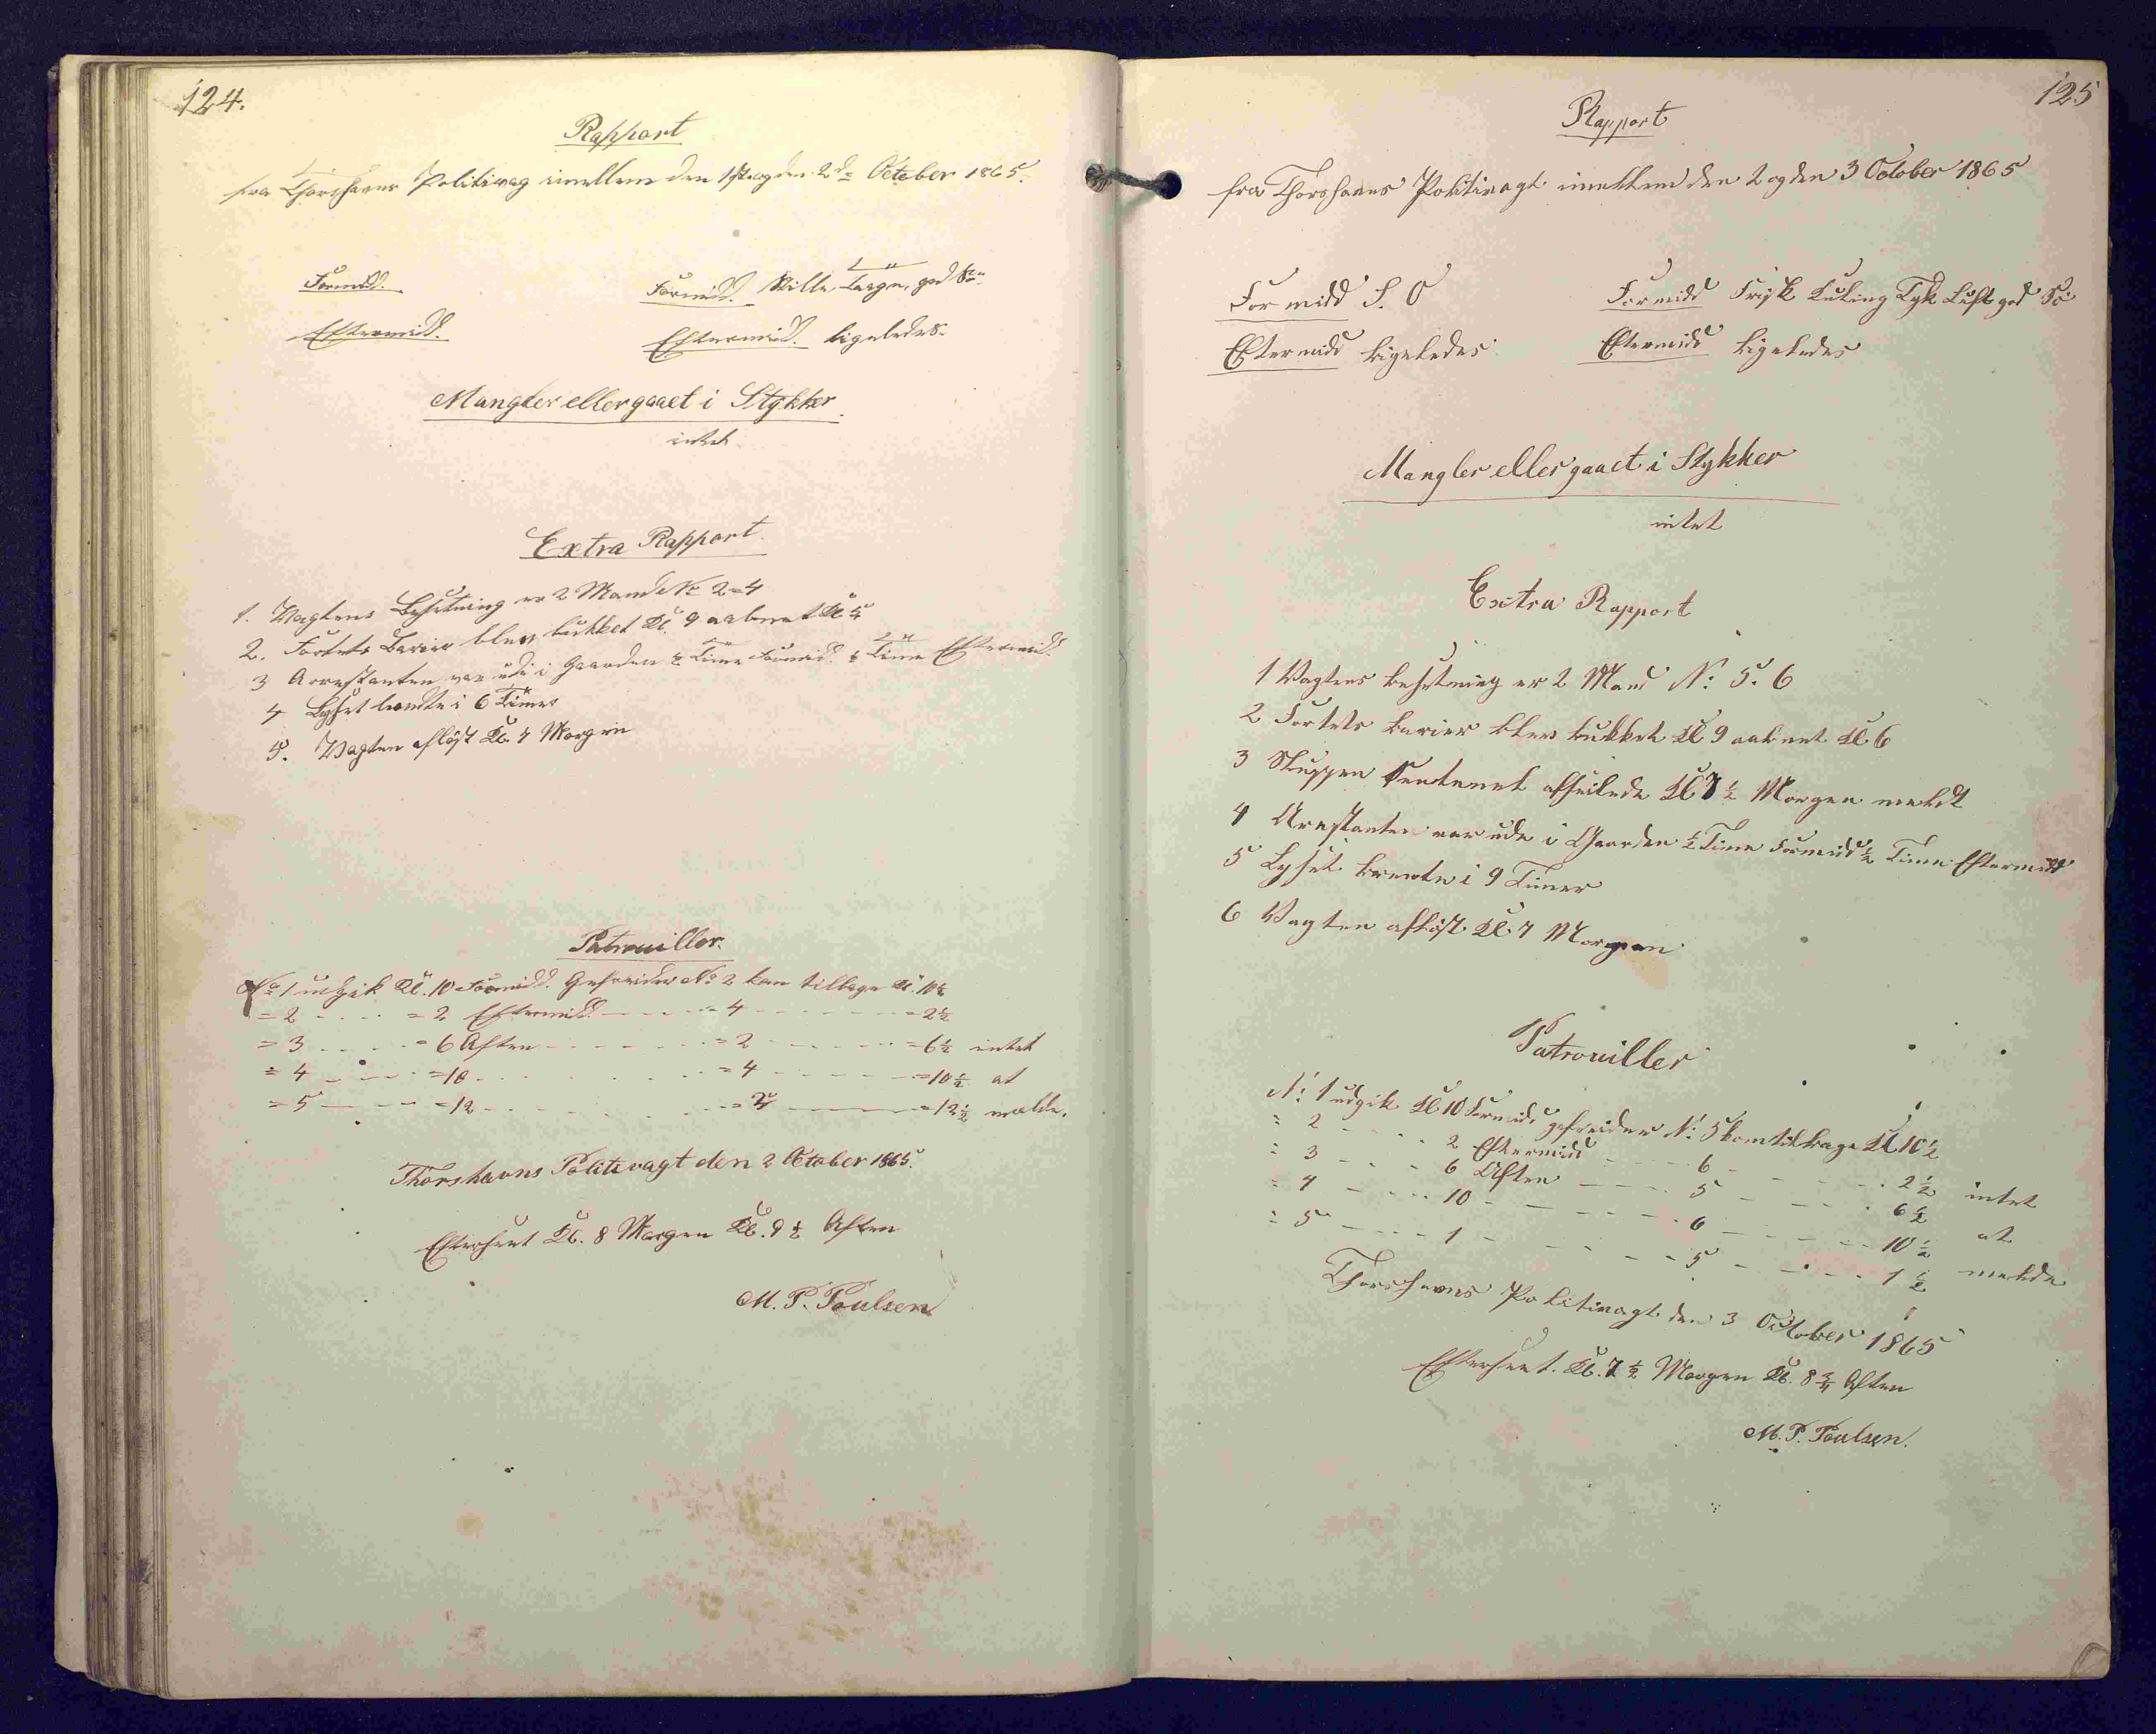 124.
Rapport
fra Thorshavns Politivag imellem den 1ste og den 2de October 1865.
Formidd. Formidd. Stille, Taage, god Sø.
Eftermidd. Eftermidd. ligeledes.
Mangler eller gaaet i Stykker
intet
Extra Rapport.
1. Vagtens Besetning er 2 Mand No 2 = 4
2. Fortets Barier blev lukket Kl. 9 aabnet Kl 5
3 Arrestanten var ude i Gaarden ½ Time Formid. ½ Time Eftermid.
4 Lyset brendte i 6 Timer
5. Vagten afløst Kl. 7 Morgen
Patrouiller.
No 1 udgik Kl. 10 Formidd. Gefreider No 2 kom tilbage Kl. 10½
= 2 - - - - = 2 Eftermidd. - - - = 4 - - - - = 2½
= 3 - - - - = 6 Aften - - - - = 2 - - - - = 6½ intet
= 4 - - - - = 10 - - - - = 4 - - - - = 10½ at
= 5 - - - - = 12 - - - - = 2 - - - - = 12½ melde.
Thorshavns Politivagt den 2 October 1865.
Efterseet Kl. 8 Morgen Kl. 9½ Aften
M. P. Poulsen
125
Rapport
fra Thorshavns Politivagt imellem den 2 og den 3 October 1865
Formidd S. O Formidd Frisk Kuling Tyk Luft god Sø
Eftermidd ligeledes Eftermidd ligeledes
Mangler eller gaaet i Stykker
intet
Extra Rapport
1 Vagtens besetning er 2 Mand No: 5. 6
2 Fortets barier blev lukket Kl 9 aabnet Kl. 6
3 Sluppen afseilede Kl 7½ Morgen meldt
4 Arestanten var ude i Gaarden ½ Time Formidd ½ Time Eftermidd
5 Lyset brente i 9 Timer
6 Vagten afløst Kl. 7 Morgen
Patrouiller
No: 1 udgik Kl 10 Formidd gefreider No: 5 kom tilbage Kl 10½
= 2 - - - - 2 Eftermidd - - - - 6 - - - - 2½ intet
= 3 - - - - 6 Aften - - - - 5 - - - - 6½
= 4 - - - - 10 - - - - 6 - - - - 10½ at
= 5 - - - - 1 - - - - 5 - - - - 1½ melde
Thorshavns Politivagt den 3 October 1865
Efterseet. Kl. 7½ Morgen Kl. 8¾ Aften
M. P. Poulsen.